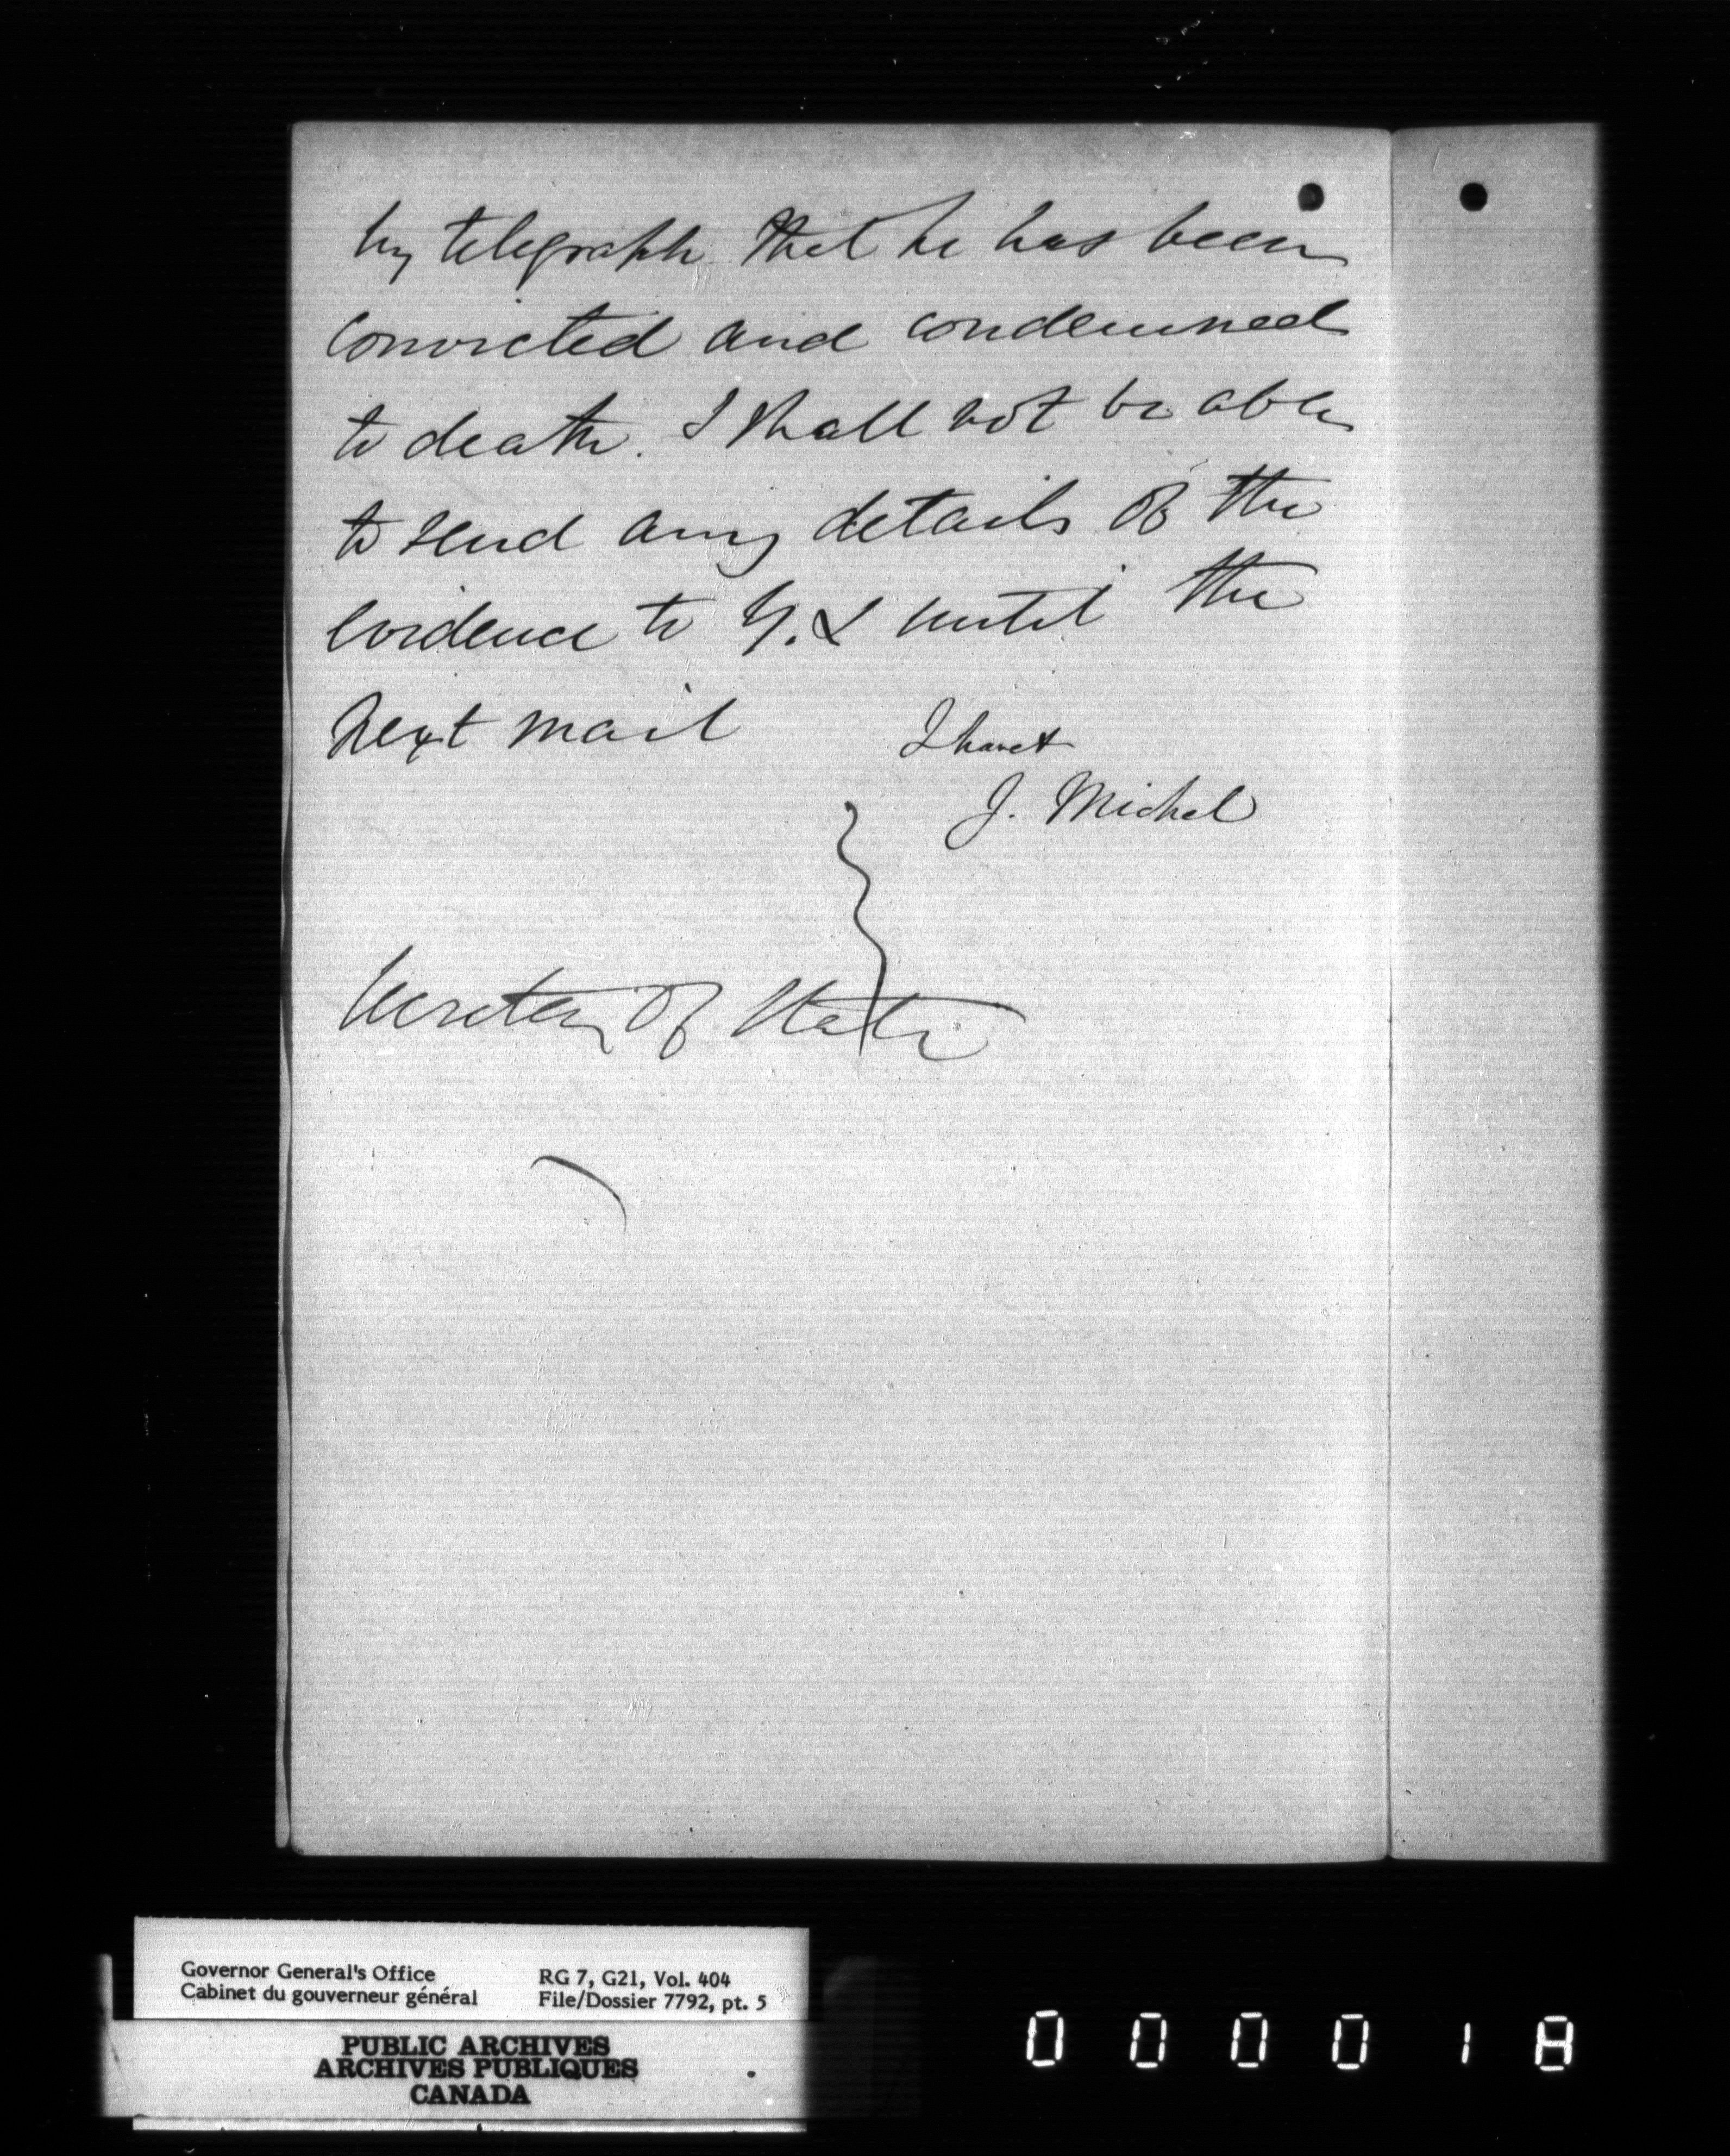 by telegraph that he has been
convicted and condemned
to death. I shall not be able
to send any details of the
evidence to Y.L until the
next mail
I have &
J. Michel
Secretary of State
Governor General's Office
Cabinet du gouverneur général
RG 7, G21, Vol. 404
File/Dossier 7792, pt. 5
PUBLIC ARCHIVES
ARCHIVES PUBLIQUES
CANADA
000018